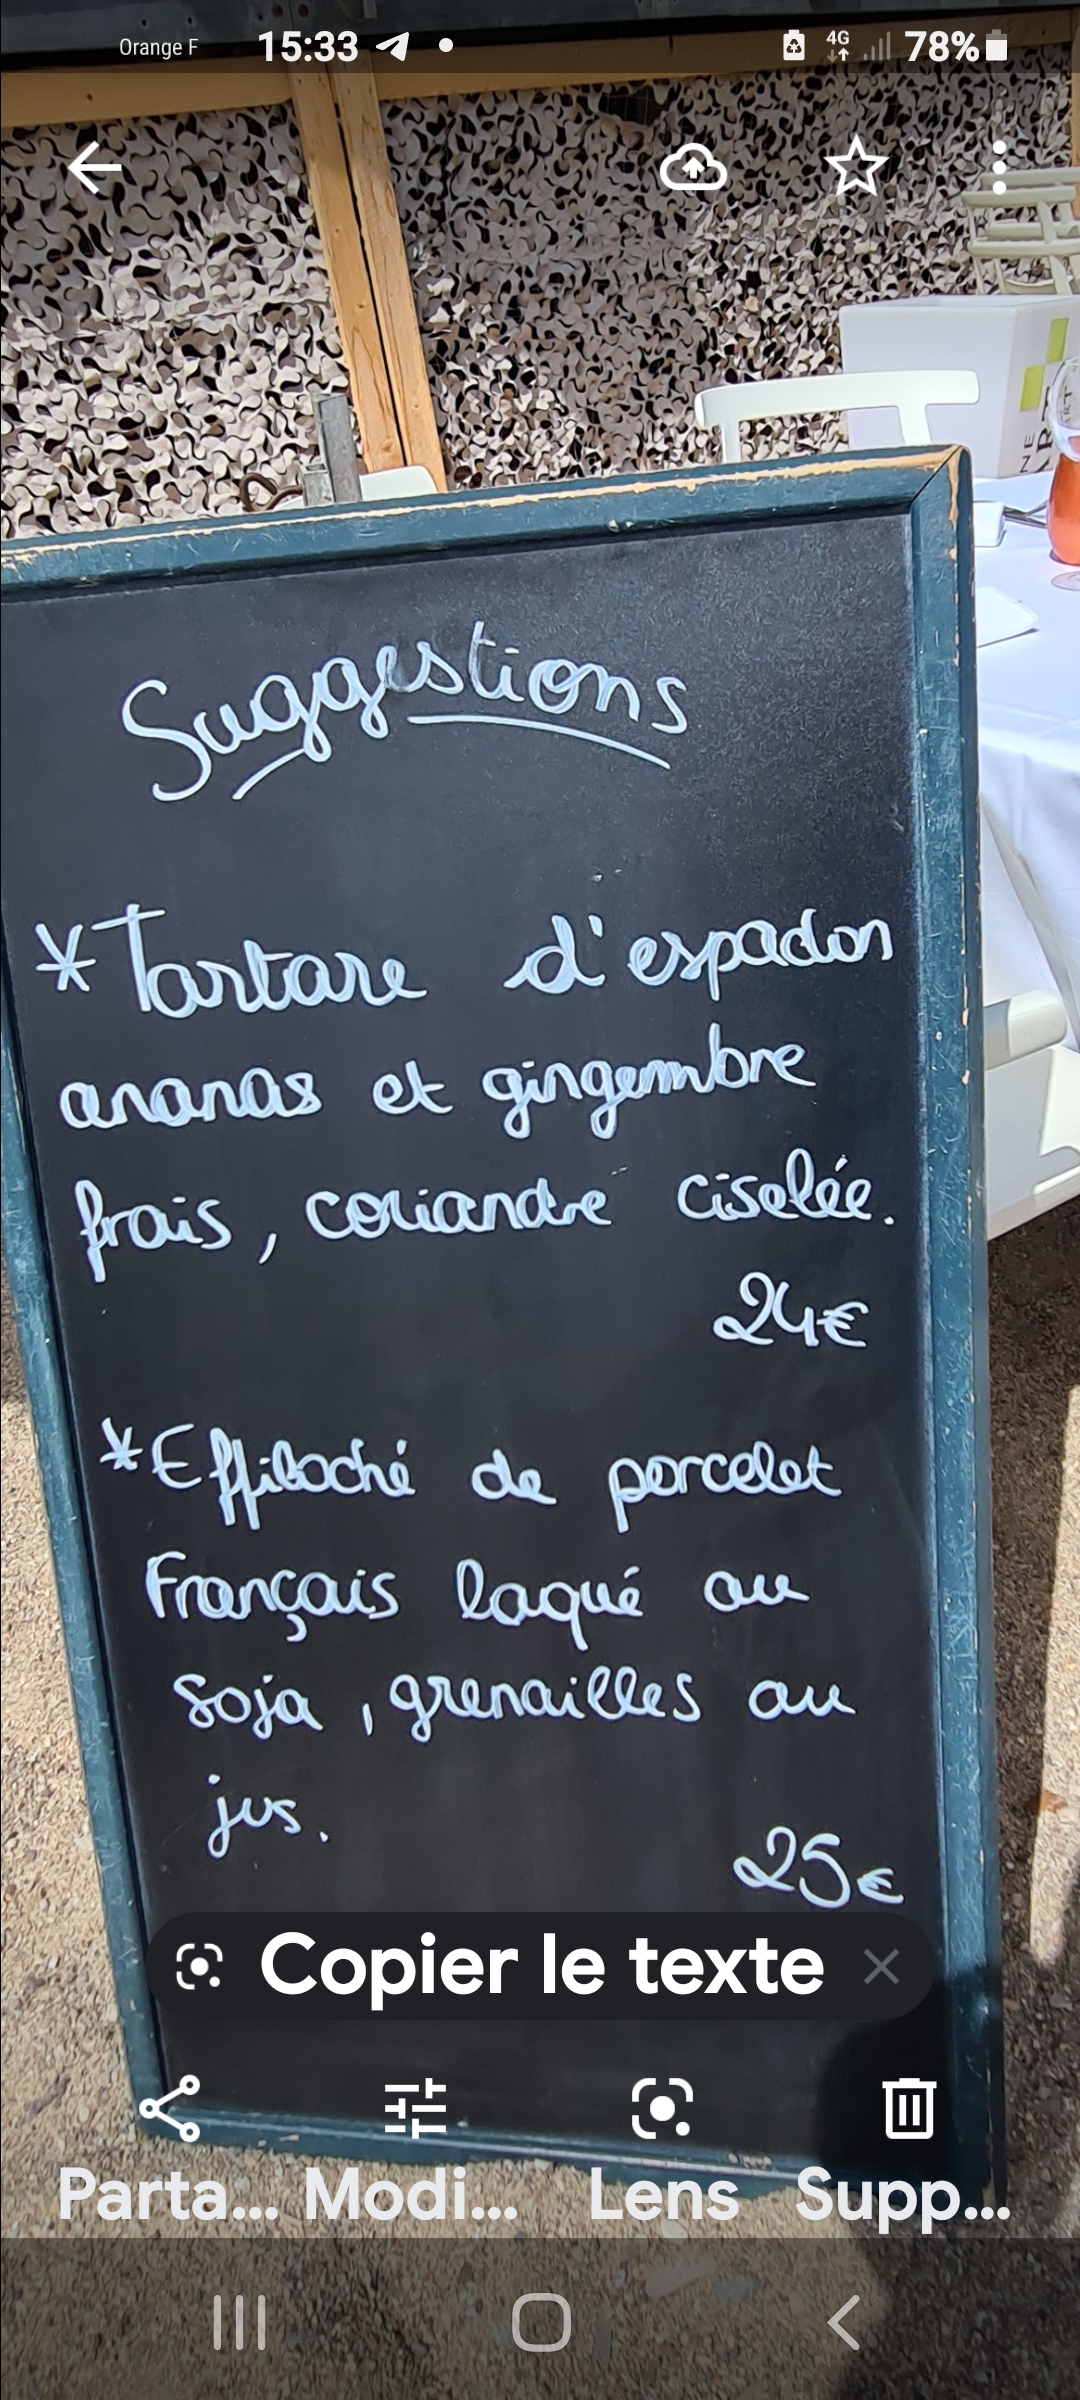 Orange F 15:33 4G 78%
NE
ART
Suggestions
*Tartare d'espadon
ananas et gingembre
frais, coriandre ciselée.
24€
*Effiloché de porcelet
Français laqué au
soja, grenailles au
jus.
25€
Copier le texte
Parta... Modi... Lens Supp...